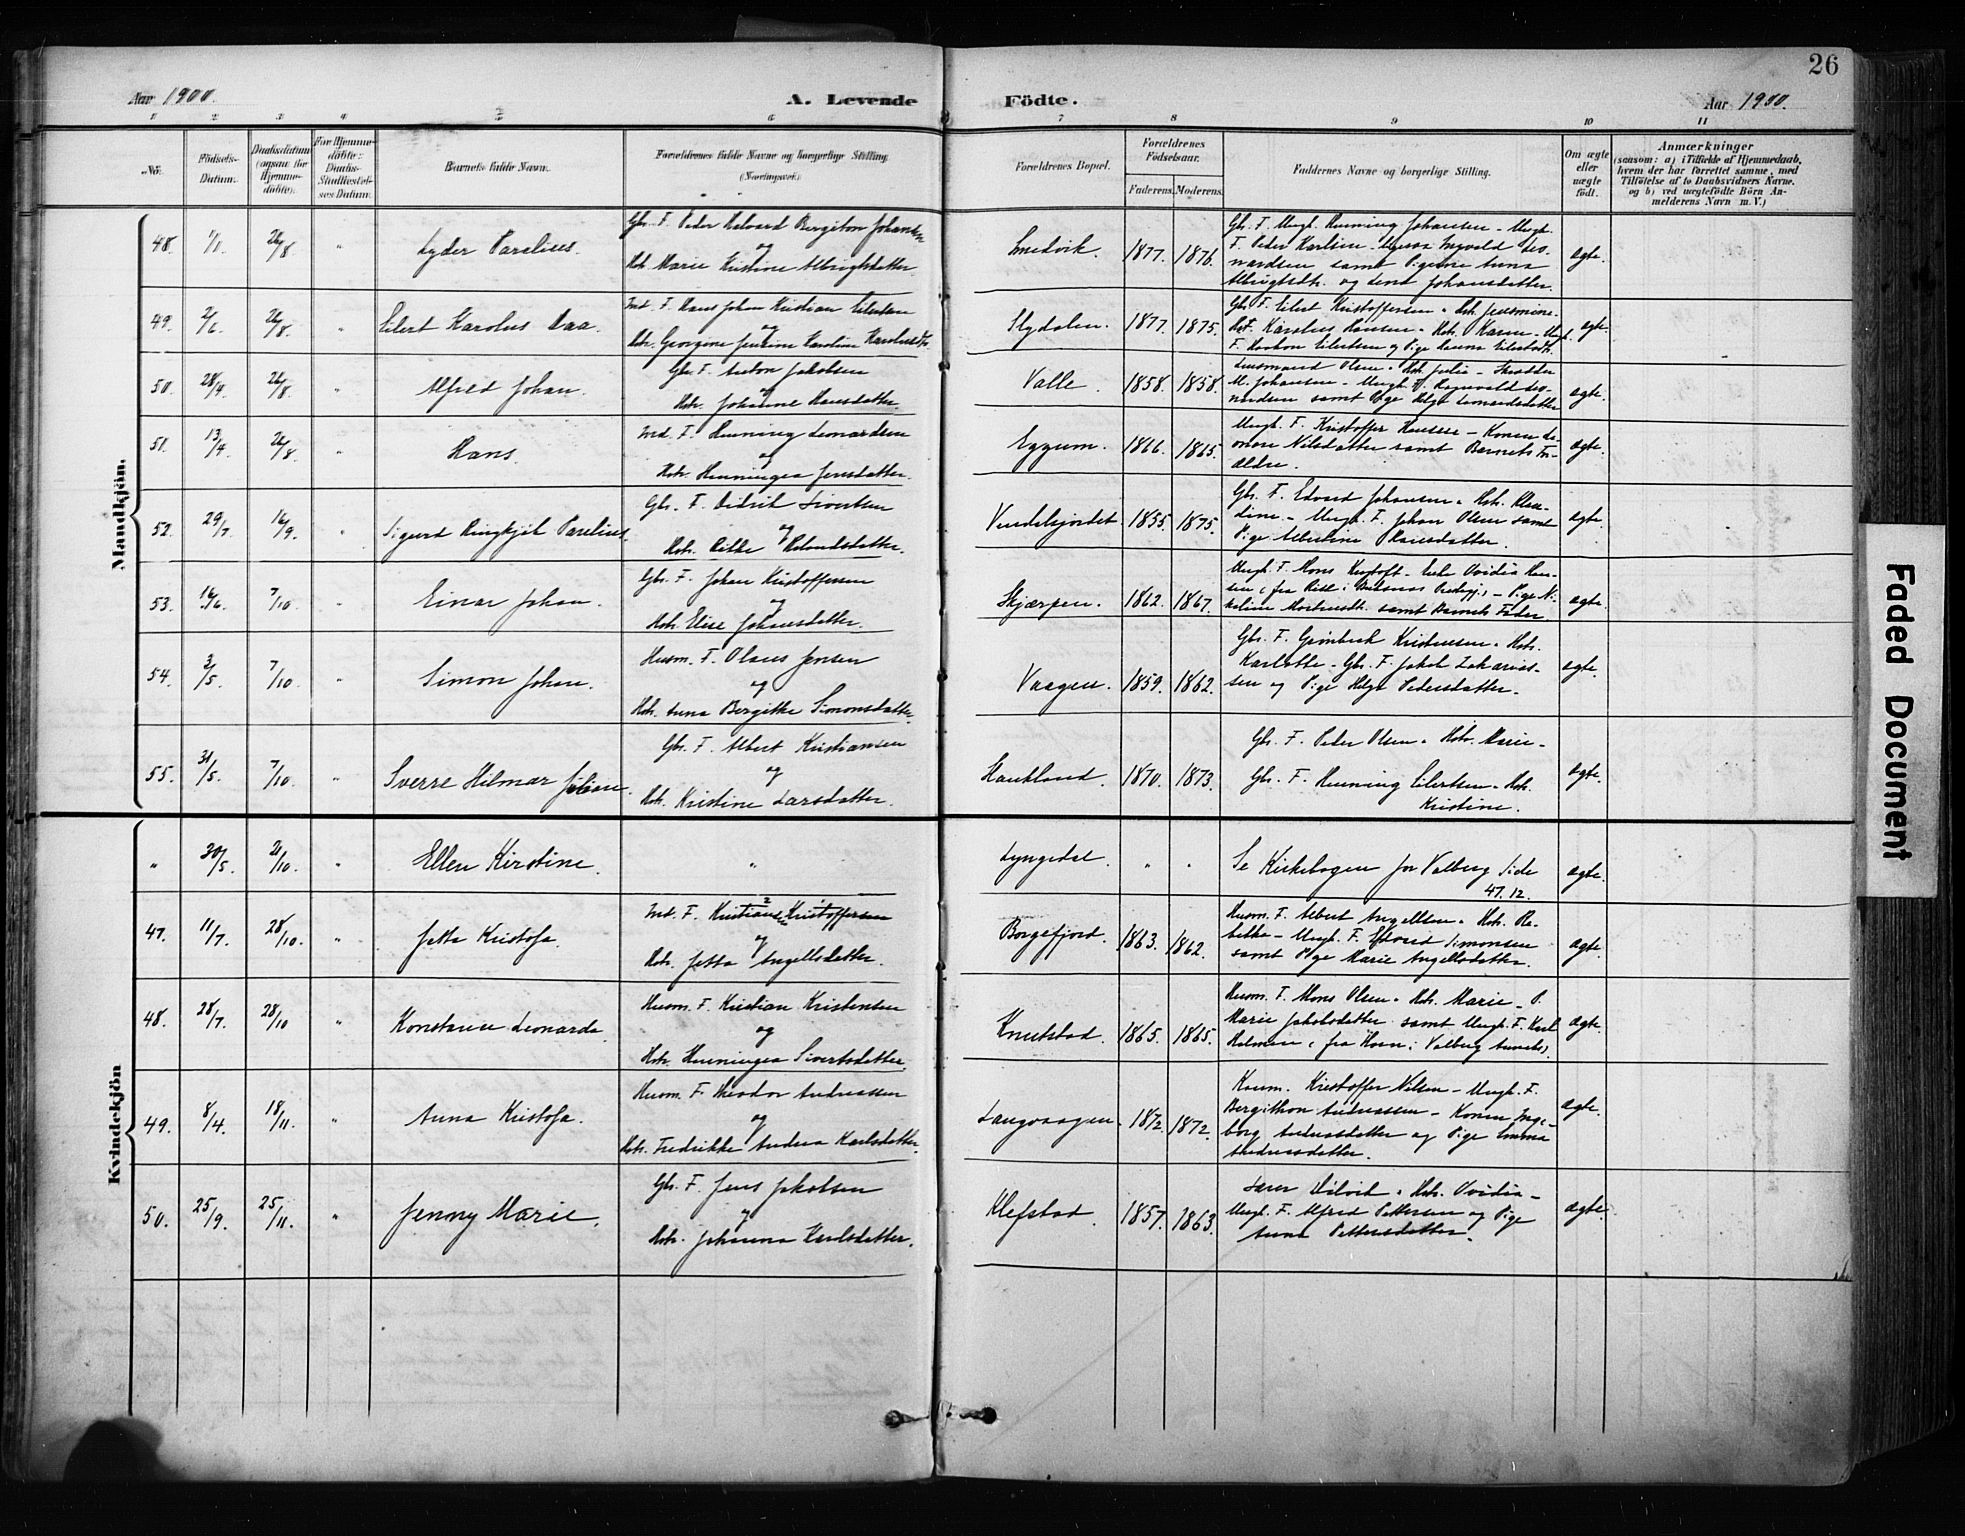 26
Aar 1900.
A. Levende
Födte.
Aar 1900.
1 2 3 4 5 6 7 8 9 10 11
No.
Födsels-Datum.
Daabsdatum (ogsaa for Hjemmedöbte).
For Hjemmedöbte: Daabs-Stadfæstelses-Datum.
Barnets fulde Navn.
Forældrenes fulde Navne og borgerlige Stilling (Næringsvei).
Forældrenes Bopæl.
Forældrenes Födselsaar.
Faderens.
Moderens.
Faddernes Navne og borgerlige Stilling.
Om ægte eller uægte födt.
Anmærkninger
(saasom: a) i Tilfælde af Hjemmedaab, hvem der har forrettet samme, med Tilföielse af to Daabsvidners Navne, og b) ved uægtefödte Börn Anmelderens Navn m. V.)
Mandkjön.
48. 1/1 26/8 " Lyder Parelius.
Gbr. F. Peder Edvard Bergiton Johansen
og
Hstr. Marie Kristine Albrigtsdatter
Smedvik. 1877. 1876.
Gbr. F. Ungk. Henning Johansen - Ungk.
F. Peder Karlsen - Ingvald Leonardsen samt Pigerne Anna
Albrigtsdtr. og Johansdatter.
ægte.
49. 2/6 26/8 " Eilert Karolus Daa.
Ind. F. Hans Johan Kristian Eilertsen
og
Hstr. Georgine Jensine Karoline Karolusdtr.
Slydalen. 1877. 1875.
Gbr. F. Eilert Kristoffersen, Hstr. Jensmine.
F. Karolus Hansen, Hstr. Karen - Ungk.
F. Haakon Eilertsen og Pige Hanna Eilertsdtr.
ægte.
50. 28/4 26/8 " Alfred Johan.
Gbr. F. Anton Jakobsen
og
Hstr. Johanne Hansdatter.
Valle. 1858. 1858.
Lensmand Olsen, Hstr. Julie - Skrædder
M. Johansen - Ungk. F. Ragnvald Leonardsen samt Pige Helga Leonardsdatter
ægte.
51. 13/4 26/8 " Hans.
Ind. F. Henning Leonardsen
og
Hstr. Henningea Jensdatter.
Eggum. 1866. 1865.
Ungk. F. Kristoffer Hansen - Konen Leonore Nilsdatter samt Barnets Forældre.
ægte.
52. 29/7 16/9. " Sigurd Ringkjöb Parelius.
Gbr. F. Didrik Sivertsen
og
Hstr. Rikke Rolandsdatter.
Vendelsjordet. 1855. 1875.
Gbr. F. Edvard Johansen, Hstr. Klaudine - Ungk. F. Johan Olsen samt
Pige Albertine Hansdatter.
ægte.
53. 16/6. 7/10. " Einar Johan.
Gbr. F. Johan Kristoffersen
og
Hstr. Elise Johansdatter.
Skjærpen. 1862. 1867.
Ungk. F. Mons Kristoff. - Enke Ovidia Hansen - Pige Nikoline Mortensdtr. samt Barnets Fader
ægte.
54. 3/5. 7/10. " Simon Johan.
Husm. F. Olaus Jensen
og
Hstr. Anna Bergitte Simonsdatter.
Vaagen. 1859. 1862.
Gbr. F. Grimbeck Kristensen, Hstr.
Karlotte - Gbr. F. Jakob Zakariassen og Pige Helga Pedersdatter.
ægte.
55. 31/5. 7/10. " Sverre Hilmar Julian.
Gbr. F. Albert Kristiansen
og
Hstr. Kristine Larsdatter.
Haukland. 1870. 1873.
Gbr. F. Peder Olsen, Hstr. Marie -
Gbr. F. Henning Eilertsen, Hstr.
Kristine.
ægte.
Kvindekjön
" 30/5. 21/10. " Ellen Kirstine.
"
Lyngedal. " "
Se Kirkebogen for Valberg Side
47. 12.
ægte.
47. 11/7. 28/10. " Jetta Kristofa.
Ind. F. Kristian Kristoffersen
og
Hstr. Jetta Angellsdatter.
Borgefjord. 1863. 1862.
Husm. F. Albert Angellsen, Hstr. Rebekka - Ungk. F. Edvard Simonsen
samt Pige Marie Angellsdatter.
ægte.
48. 28/7. 28/10 " Konstance Leonarda.
Husm. F. Kristian Kristensen
og
Hstr. Henningea Sivertsdatter.
Knutstad. 1865. 1865.
Husm. F. Mons Olsen, Hstr. Marie - P.
Marie Jakobsdatter samt Ungk. F. Karl
Holmen (fra Horn i Valberg Annex).
ægte.
49. 8/4. 18/11. " Anna Kristofa.
Husm. F. Theodor Andreassen
og
Hstr. Fredrikke Andrea Karlsdatter.
Langvaagen. 1872. 1872.
Husm. Kristoffer Nilsen - Ungk. F.
Bergithon Andreassen - Konen Ingeborg Andreasdatter og Pige Emma
Andreasdatter.
ægte.
50. 25/9. 25/11. " Jenny Marie.
Gbr. F. Jens Jakobsen
og
Hstr. Johanna Karlsdatter.
Klefstad. 1857. 1863.
Lærer Didrik, Hstr. Ovidia -
Ungk. F. Alfred Pettersen og Pige
Anna Pettersdatter.
ægte.
Faded Document